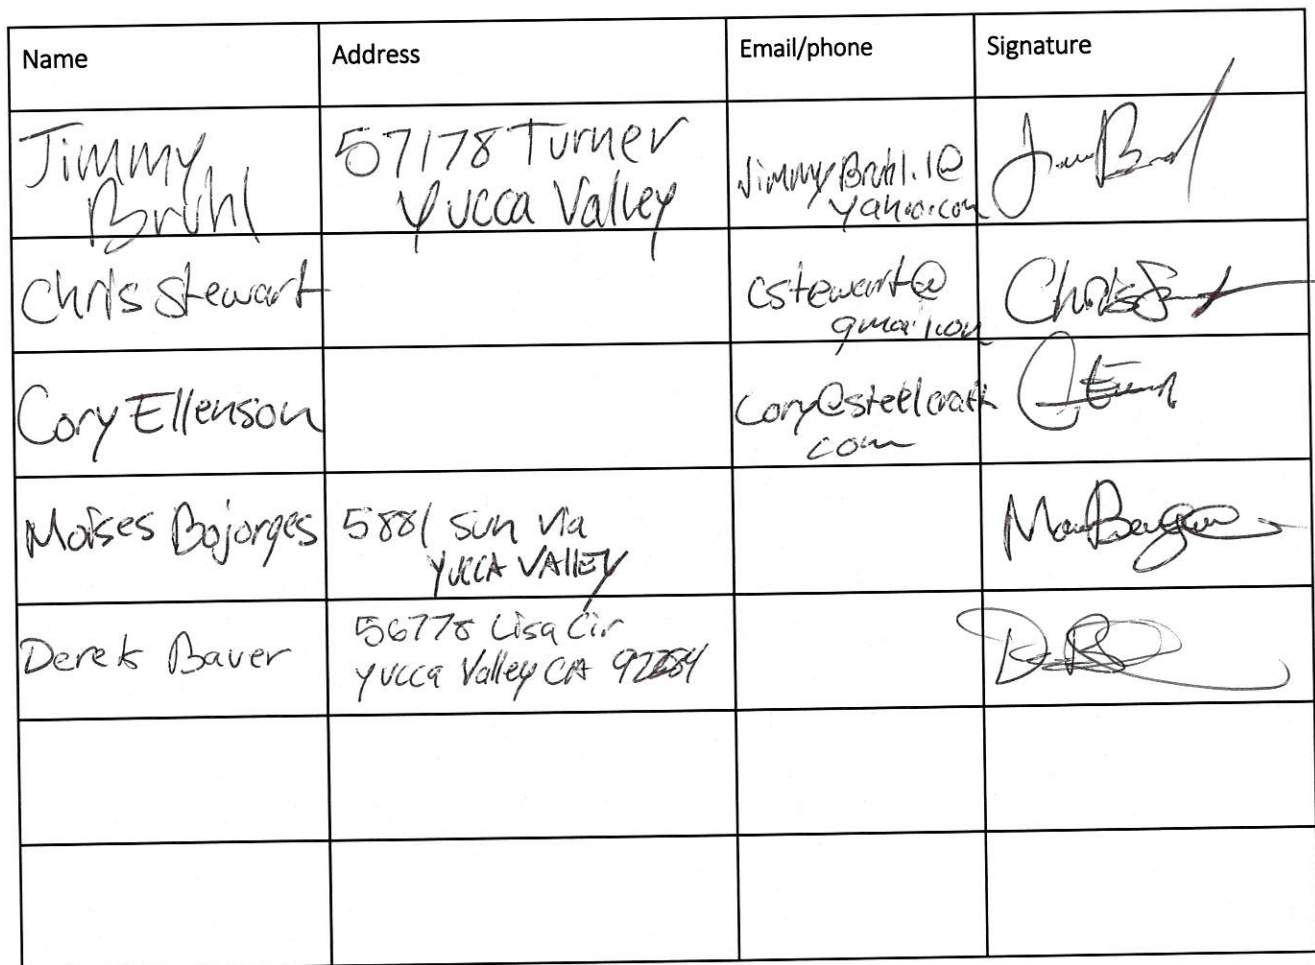 Name Address Email/phone Signature
Jimmy 57178 Turner
Bruhl Yucca Valley JimmyBruhl.1@
yahoo.com
Chris Stewart cstewart@
gmail.com
Cory Ellenson Cory@steelcraft
com
Moises Bojorges 5881 Sun Via
YUCCA VALLEY
Derek Bauer 56778 Lisa Cir
Yucca Valley CA 92284